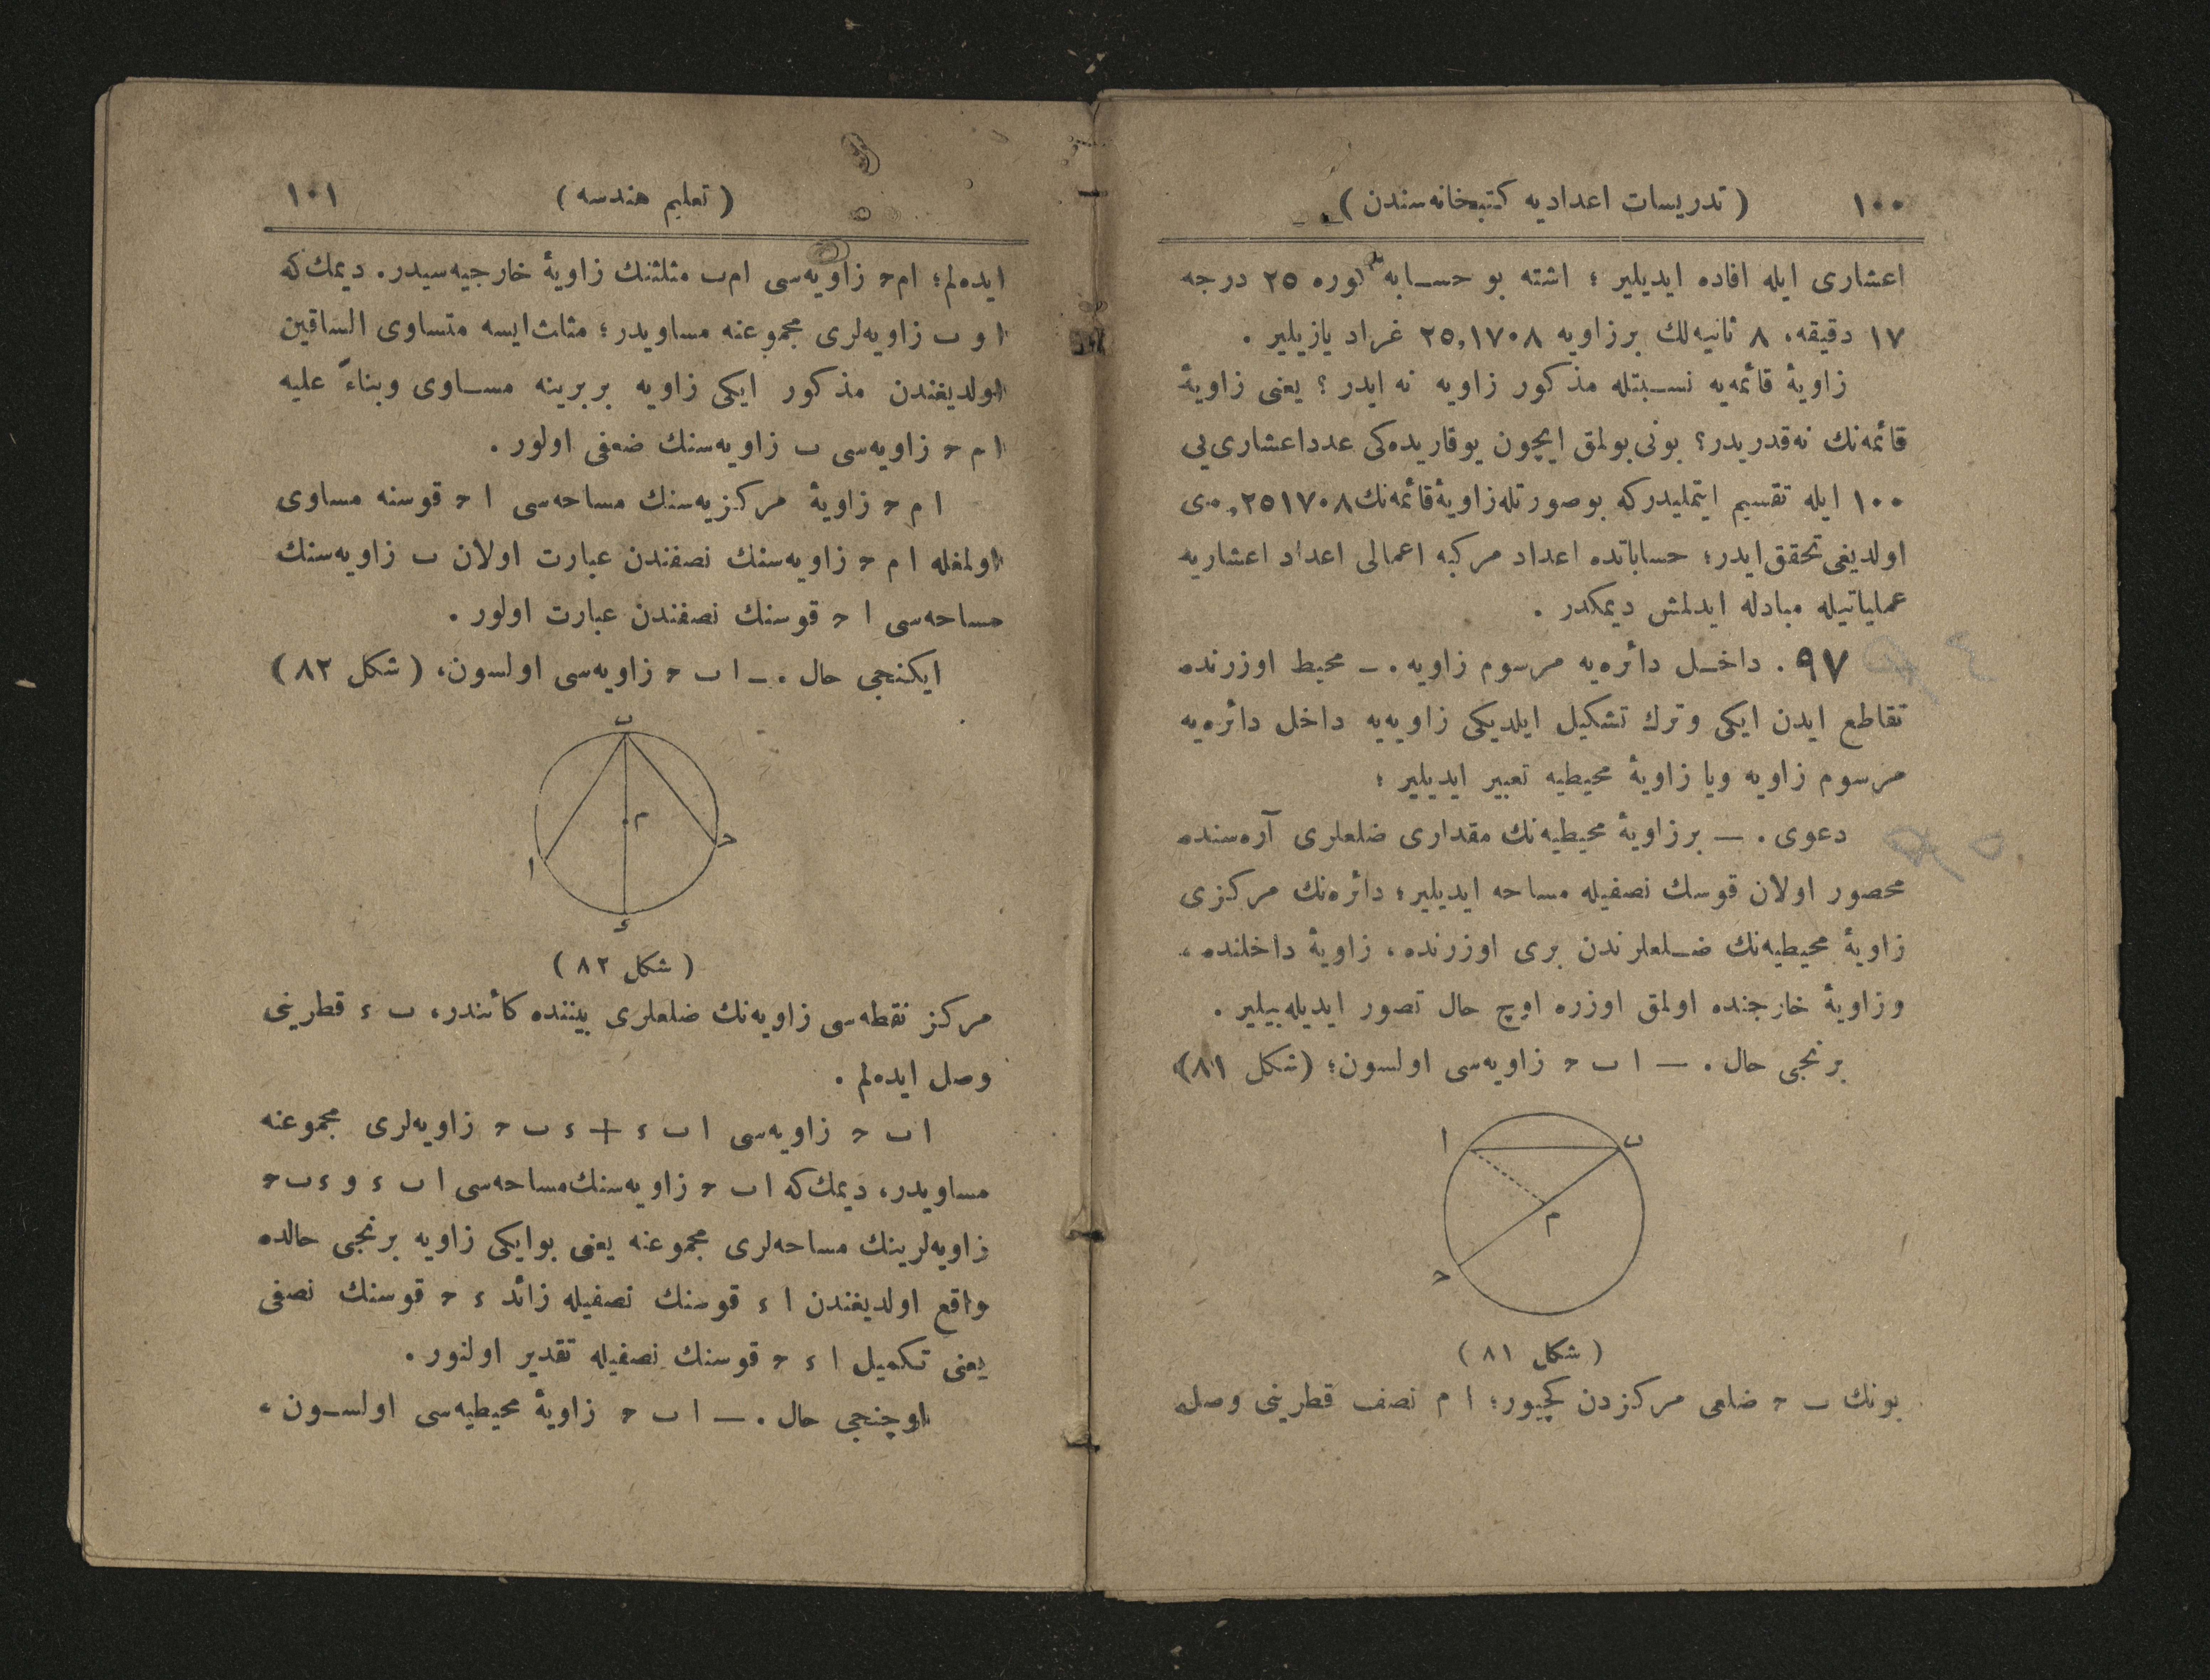 ١٠٠ ( تدريسات اعداديه كتبخانه‌سندن )
اعشارى ايله افاده ايديلير ؛ اشته بو حسابه كوره ٢٥ درجه
١٧ دقيقه، ٨ ثانيه‌لك برزاويه ٢٥,١٧٠٨ غراد يازيلير .
زاويهٔ قائمه‌يه نسبتله مذكور زاويه نه ايدر ؟ يعنى زاويهٔ
قائمه‌نك نه‌قدريدر؟ بونى بولمق ايچون يوقاريده‌كى عدد اعشارى‌يى
١٠٠ ايله تقسيم ايتمليدركه بوصورتله زاويهٔ قائمه‌نك ٠,٢٥١٧٠٨ى
اولديغى تحقق ايدر؛ حساباتده اعداد مركبه اعمالى اعداد اعشاريه
عملياتيله مبادله ايدلمش ديمكدر .
٩٧ . داخل دائره‌يه مرسوم زاويه . ـ محيط اوزرنده
تقاطع ايدن ايكى وترك تشكيل ايلديكى زاويه‌يه داخل دائره‌يه
مرسوم زاويه ويا زاويهٔ محيطيه تعبير ايديلير ؛
دعوى . — برزاويهٔ محيطيه‌نك مقدارى ضلعلرى آره‌سنده
محصور اولان قوسك نصفيله مساحه ايديلير؛ دائره‌نك مركزى
زاويهٔ محيطيه‌نك ضلعلرندن برى اوزرنده ، زاويهٔ داخلنده ،
وزاويهٔ خارجنده اولمق اوزره اوچ حال تصور ايديله‌بيلير .
برنجى حال . — ا ب ح زاويه‌سى اولسون؛ (شكل ٨١)
ا ب
م
ح
( شكل ٨١ )
بونك ب ح ضلعى مركزدن كچيور؛ ا م نصف قطرينى وصل
( تعليم هندسه ) ١٠١
ايده‌لم؛ ام ح زاويه‌سى ام ب مثلثنك زاويهٔ خارجيه‌سيدر. ديمك كه
ا و ب زاويه‌لرى مجموعنه مساويدر؛ مثلث ايسه متساوى الساقين
اولديغندن مذكور ايكى زاويه بربرينه مساوى وبناءً عليه
ا م ح زاويه‌سى ب زاويه‌سنك ضعفى اولور .
ا م ح زاويهٔ مركزيه‌سنك مساحه‌سى ا ح قوسنه مساوى
اولمغله ا م ح زاويه‌سنك نصفندن عبارت اولان ب زاويه‌سنك
مساحه‌سى ا ح قوسنك نصفندن عبارت اولور .
ايكنجى حال . ـ ا ب ح زاويه‌سى اولسون، ( شكل ٨٢ )
ب
م
ح
ا
ء
( شكل ٨٢ )
مركز نقطه‌سى زاويه‌نك ضلعلرى بيننده كائندر، ب ء قطرينى
وصل ايده‌لم .
ا ب ح زاويه‌سى ا ب ء + ء ب ح زاويه‌لرى مجموعنه
مساويدر، ديمك كه ا ب ح زاويه‌سنك مساحه‌سى ا ب ء و ء ب ح
زاويه‌لرينك مساحه‌لرى مجموعنه يعنى بوايكى زاويه برنجى حالده
واقع اولديغندن ا ء قوسنك نصفيله زائد ء ح قوسنك نصفى
يعنى تكميل ا ء ح قوسنك نصفيله تقدير اولنور .
اوچنجى حال . — ا ب ح زاويهٔ محيطيه‌سى اولسون ،